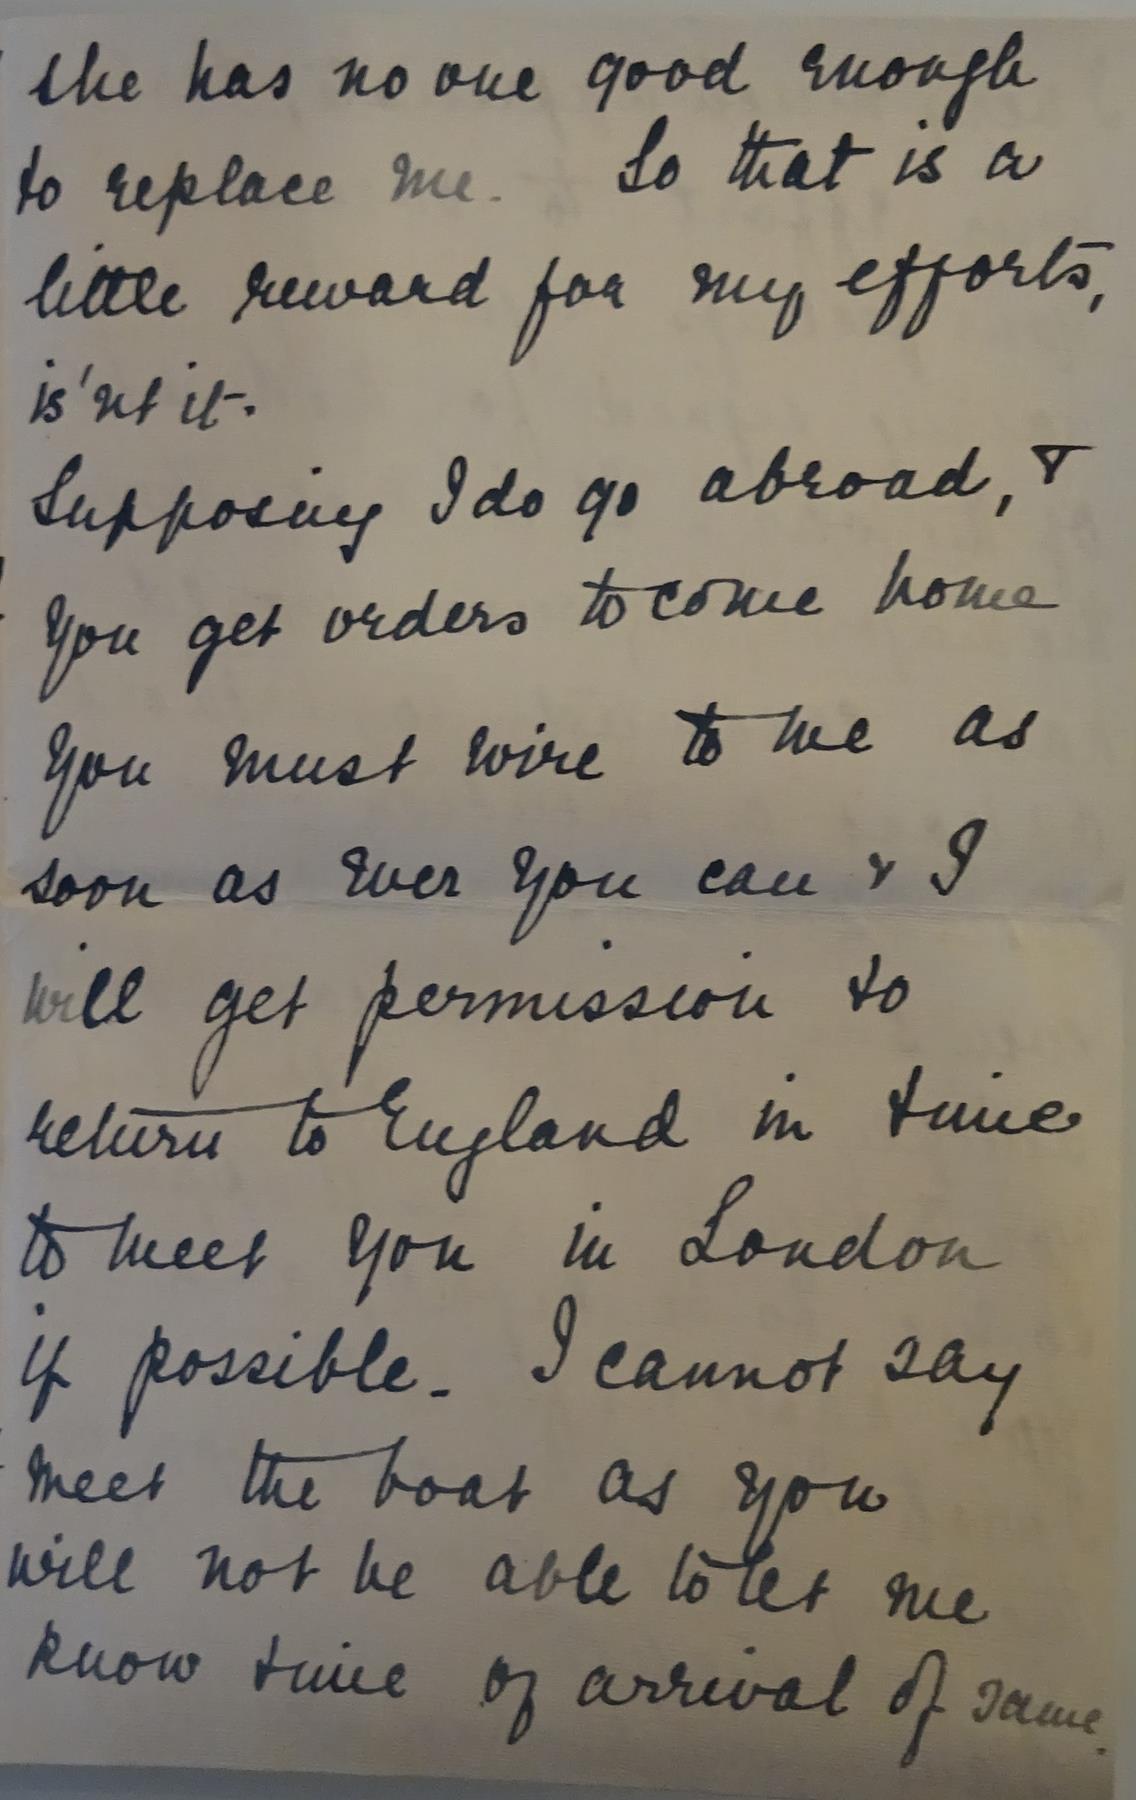 she has no one good enough
to replace me. So that is a
little reward for my efforts,
is'nt it.
Supposing I do go abroad, &
you get orders to come home
you must wire to me as
soon as ever you can & I
will get permission to
return to England in time
to meet you in London
if possible. I cannot say
meet the boat as you
will not be able to let me
know time of arrival of same.